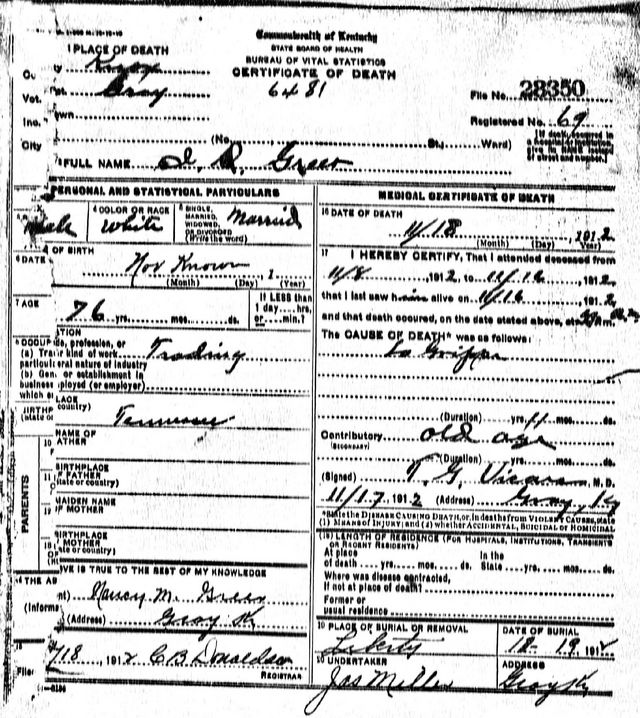 Commonwealth of Kentucky
STATE BOARD OF HEALTH
BUREAU OF VITAL STATISTICS
CERTIFICATE OF DEATH
6481
1 PLACE OF DEATH
Knox
Vot. Gray
File No. 28350
Registered No. 69
Inc. own
City (No. St., Ward)
[If death occurred in a hospital or institution, give its NAME instead of street and number.]
FULL NAME J. R. Greer
PERSONAL AND STATISTICAL PARTICULARS
4 COLOR OR RACE
5 SINGLE, MARRIED, WIDOWED, OR DIVORCED (Write the word)
Male White Married
6 DATE OF BIRTH
Not Known, 1
(Month) (Day) (Year)
7 AGE
76 yrs. mos. ds.
If LESS than 1 day.... hrs. or.... min.?
OCCUPATION
(a) Trade, profession, or kind of work Trading
particular nature of industry
(b) Gen. or establishment in
business employed (or employer)
BIRTHPLACE
(State or country) Tennessee
10 NAME OF FATHER
11 BIRTHPLACE OF FATHER
(State or country)
MAIDEN NAME OF MOTHER
BIRTHPLACE OF MOTHER
(State or country)
PARENTS
14 THE ABOVE IS TRUE TO THE BEST OF MY KNOWLEDGE
(Informant) Nancy M. Greer
(Address) Gray Ky
18, 1912 C B Donaldson
REGISTRAR
MEDICAL CERTIFICATE OF DEATH
16 DATE OF DEATH
11/18, 1912
(Month) (Day) (Year)
17 I HEREBY CERTIFY, That I attended deceased from
11/8 1912, to 11/16, 1912,
that I last saw him alive on 11/16, 1912,
and that death occured, on the date stated above, at
The CAUSE OF DEATH* was as follows:
La Grippe
(Duration) yrs. mos. ds.
Contributory old age
(SECONDARY)
(Duration) yrs. mos. ds.
(Signed) T. G. M. D.
11/17 1912 (Address) Gray, Ky
*State the DISEASE CAUSING DEATH, or, in deaths from VIOLENT CAUSES, state
(1) MEANS OF INJURY; and (2) whether ACCIDENTAL, SUICIDAL or HOMICIDAL
(18) LENGTH OF RESIDENCE (FOR HOSPITALS, INSTITUTIONS, TRANSIENTS OR RECENT RESIDENTS)
At place of death yrs. mos. ds. In the State yrs. mos. ds.
Where was disease contracted,
if not at place of death?
Former or
usual residence
19 PLACE OF BURIAL OR REMOVAL
DATE OF BURIAL
Liberty 19, 191
20 UNDERTAKER
ADDRESS
Jas Miller Gray Ky